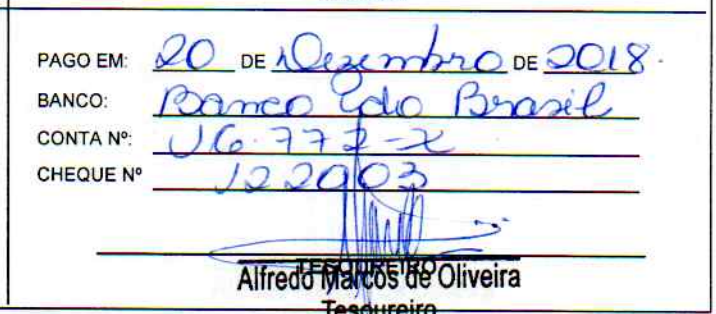 PAGO EM: 20 DE Dezembro DE 2018.
BANCO: Banco do Brasil
CONTA Nº: 16.772-X
CHEQUE Nº 122003
TESOUREIRO
Alfredo Marcos de Oliveira
Tesoureiro